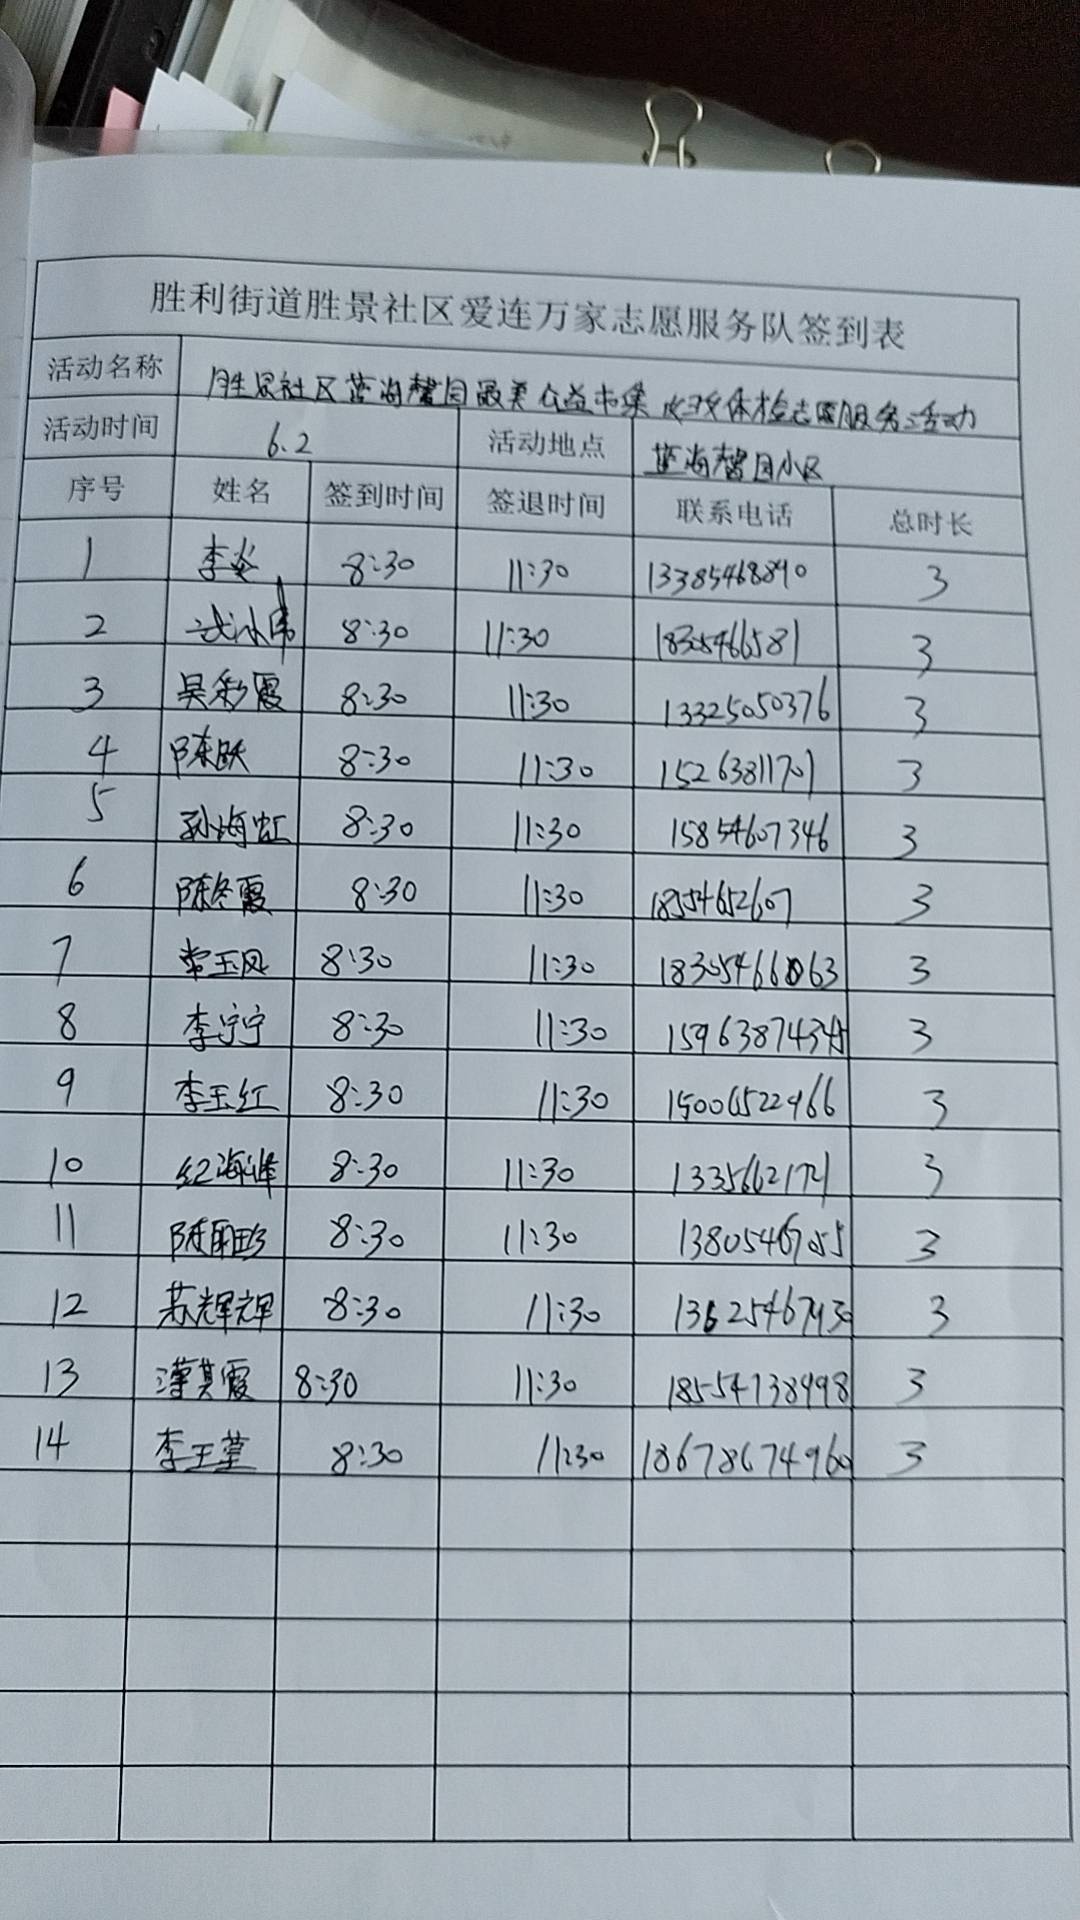 胜利街道胜景社区爱连万家志愿服务队签到表
活动名称 胜景社区蓝海馨园最美公益市集 体检志愿服务活动
活动时间 6.2 活动地点 蓝海馨园小区
序号 姓名 签到时间 签退时间 联系电话 总时长
1 李炎 8:30 11:30 13385468890 3
2 8:30 11:30 18305466581 3
3 吴彩霞 8:30 11:30 13325050376 3
4 陈跃 8:30 11:30 15263811701 3
5 孙海虹 8:30 11:30 15854607346 3
6 陈冬霞 8:30 11:30 18554652607 3
7 常玉凤 8:30 11:30 3
8 李宁宁 8:30 11:30 3
9 李玉红 8:30 11:30 15006522966 3
10 纪海峰 8:30 11:30 3
11 陈丽珍 8:30 11:30 13805467055 3
12 苏辉辉 8:30 11:30 3
13 薄其霞 8:30 11:30 18554738998 3
14 李玉堂 8:30 11:30 18678674960 3